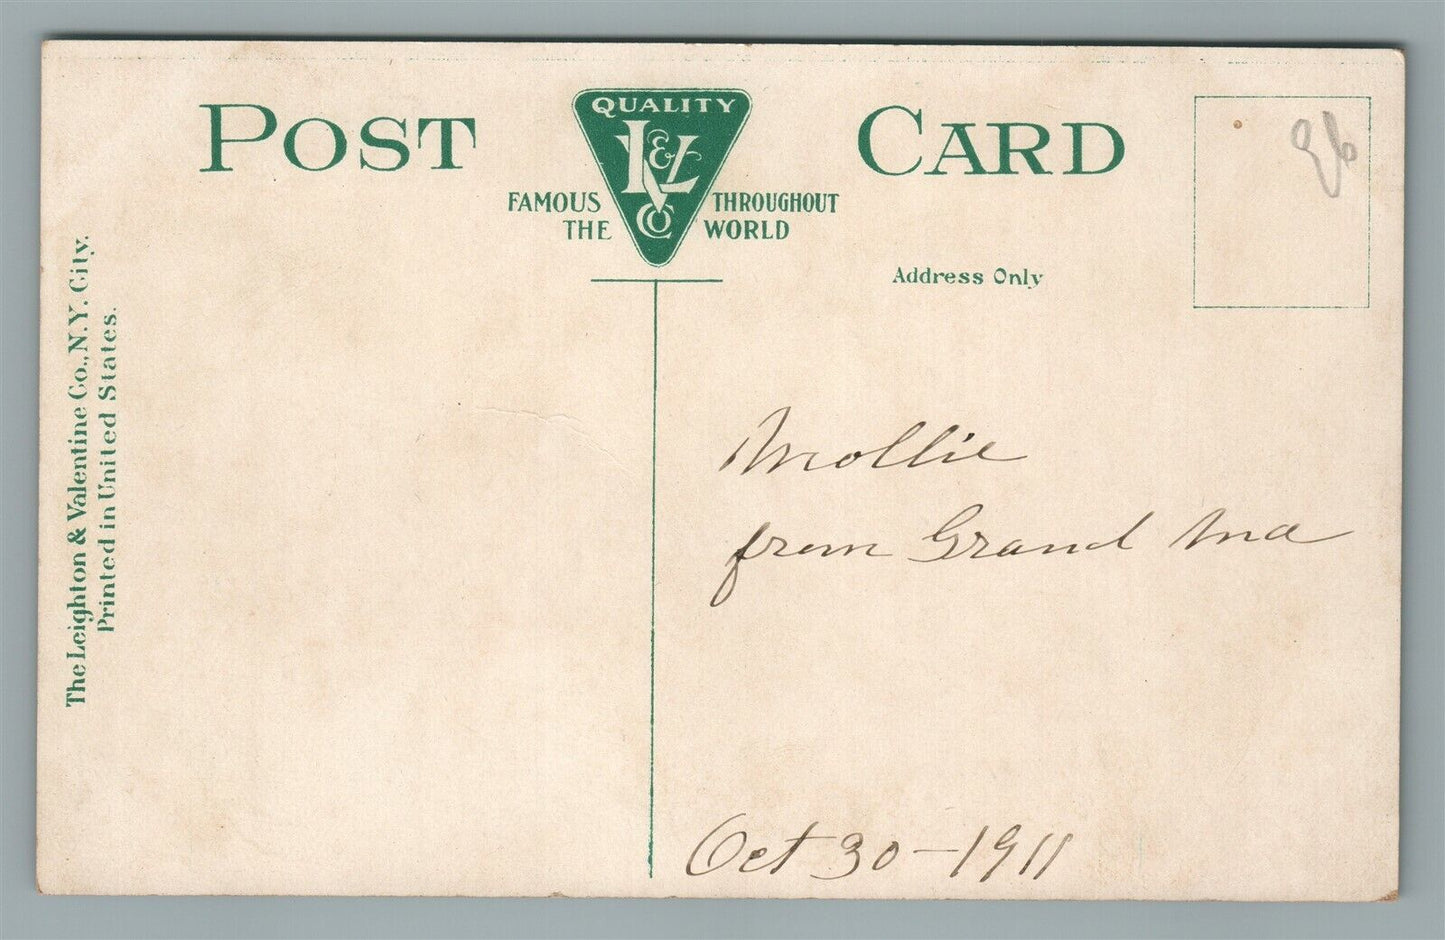 POST CARD
QUALITY
L & V
CO
FAMOUS THROUGHOUT
THE WORLD
Address Only
The Leighton & Valentine Co., N.Y. City.
Printed in United States.
Mollie
from Grand Ma
Oct 30 – 1911